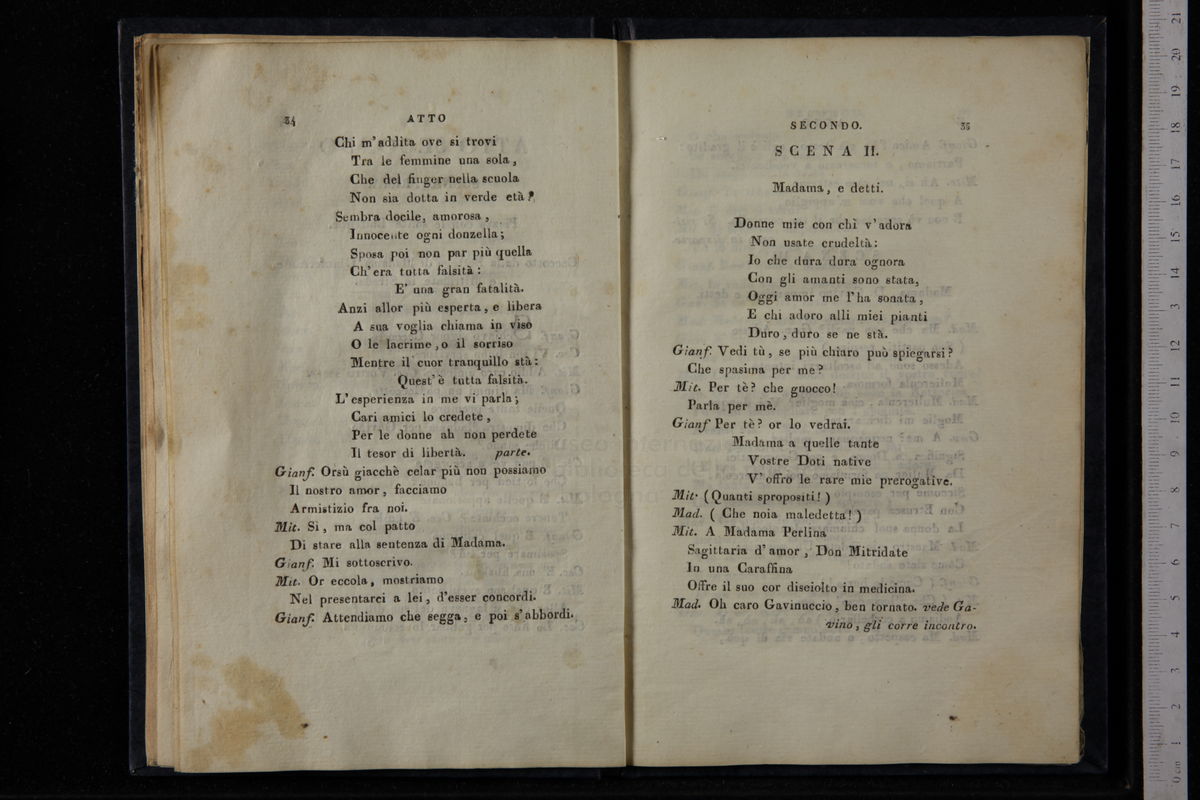 34
ATTO
Chi m'addita ove si trovi
Tra le femmine una sola,
Che del finger nella scuola
Non sia dotta in verde età?
Sembra docile, amorosa,
Innocente ogni donzella;
Sposa poi non par più quella
Ch'era tutta falsità:
E' una gran fatalità.
Anzi allor più esperta, e libera
A sua voglia chiama in viso
O le lacrime, o il sorriso
Mentre il cuor tranquillo stà:
Quest'è tutta falsità.
L'esperienza in me vi parla;
Cari amici lo credete,
Per le donne ah non perdete
Il tesor di libertà. parte.
Gianf. Orsù giacchè celar più non possiamo
Il nostro amor, facciamo
Armistizio fra noi.
Mit. Si, ma col patto
Di stare alla sentenza di Madama.
Gianf. Mi sottoscrivo.
Mit. Or eccola, mostriamo
Nel presentarci a lei, d'esser concordi.
Gianf. Attendiamo che segga, e poi s'abbordi.
SECONDO.
35
SCENA II.
Madama, e detti.
Donne mie con chi v'adora
Non usate crudeltà:
Io che dura dura ognora
Con gli amanti sono stata,
Oggi amor me l'ha sonata,
E chi adoro alli miei pianti
Duro, duro se ne stà.
Gianf. Vedi tù, se più chiaro può spiegarsi?
Che spasima per me?
Mit. Per tè? che gnocco!
Parla per mè.
Gianf Per tè? or lo vedrai.
Madama a quelle tante
Vostre Doti native
V'offro le rare mie prerogative.
Mit. (Quanti spropositi!)
Mad. (Che noia maledetta!)
Mit. A Madama Perlina
Sagittaria d'amor, Don Mitridate
In una Caraffina
Offre il suo cor disciolto in medicina.
Mad. Oh caro Gavinuccio, ben tornato. vede Ga-
vino, gli corre incontro.